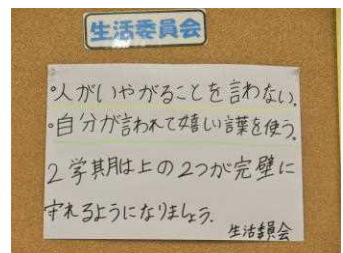 生活委員会
・人がいやがることを言わない。
・自分が言われて嬉しい言葉を使う。
2学期は上の2つが完璧に
守れるようになりましょう。
生活委員会